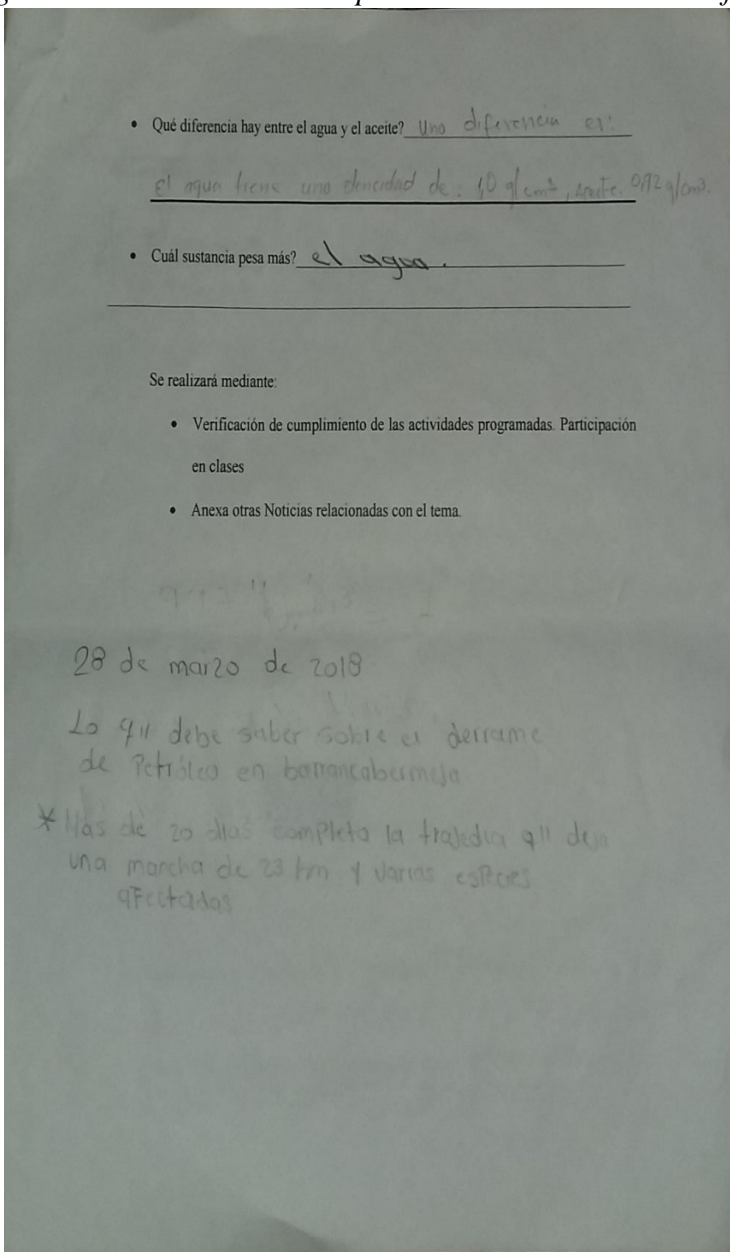 • Qué diferencia hay entre el agua y el aceite? Una diferencia es:
el agua tiene una dencidad de: 1,0 g/cm³, aceite. 0,92 g/cm³.
• Cuál sustancia pesa más? el agua.
Se realizará mediante:
• Verificación de cumplimiento de las actividades programadas. Participación
en clases
• Anexa otras Noticias relacionadas con el tema.
28 de marzo de 2018
Lo q" debe saber sobre el derrame
de Petróleo en barrancabermeja
* Más de 20 días completa la trajedia q" deja
una mancha de 23 km y varias especies
afectadas